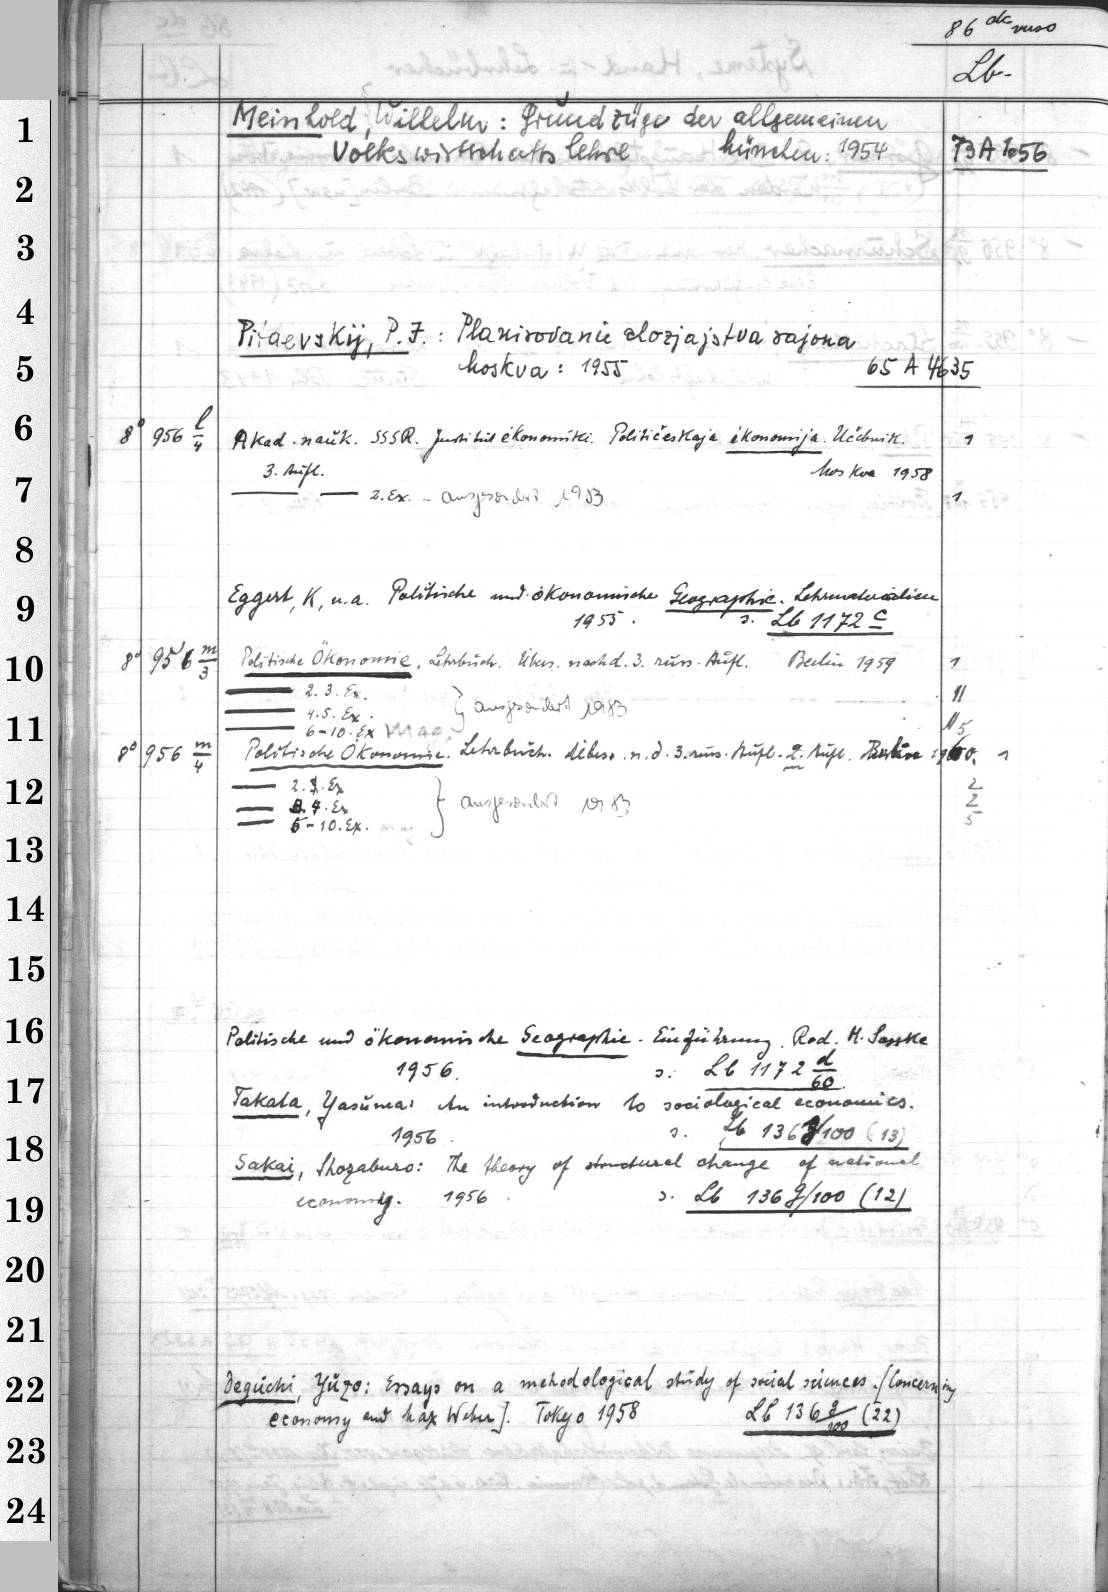 86 dc verso
Lb-
1 Meinhold, Wilhelm: Grundzüge der allgemeinen
Volkswirtschaftslehre München: 1954 73 A 1656
2
3
4
Piraevskij, P. I.: Planirovanie chozjajstva rajona
5 Moskva: 1955 65 A 4635
6 8° 956 l/4 Akad. nauk. SSSR. Institut ėkonomiki. Političeskaja ėkonomija. Učebnik. 1
3. Aufl. Moskva 1958
7 2. Ex. - ausgesondert 1983 1
8
9 Eggert, K, u. a. Politische und ökonomische Geographie. Lehrmaterialien
1955. s. Lb 1172 c
10 8° 956 m/3 Politische Ökonomie. Lehrbuch. Übers. nach d. 3. russ. Aufl. Berlin 1959 1
2. 3. Ex. } ausgesondert 1983 11
4. 5. Ex. 11
11 6-10. Ex 5
8° 956 m/4 Politische Ökonomie. Lehrbuch. Übers. n. d. 3. russ. Aufl. 2. Aufl. Berlin 1960. 1
12 2. 3. Ex } ausgesondert 1983 2
4. Ex 2
6-10. Ex. 5
13
14
15
16 Politische und ökonomische Geographie. Einführung. Red. H. Sasske
1956. s. Lb 1172 d/60
17 Takata, Yasuma: An introduction to sociological economics.
1956. s. Lb 136 g/100 (13)
18 Sakai, Shozaburo: The theory of structural change of national
19 economy. 1956. s. Lb 136 g/100 (12)
20
21
22 Deguchi, Yūzo: Essays on a methodological study of social sciences. [Concerning
economy and Max Weber]. Tokyo 1958 Lb 136 g/100 (22)
23
24